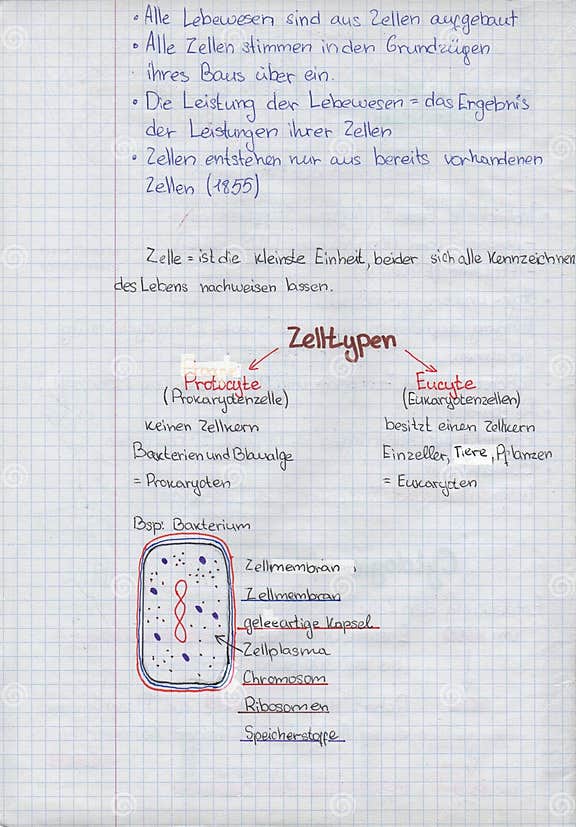 • Alle Lebewesen sind aus Zellen aufgebaut
• Alle Zellen stimmen in den Grundzügen
ihres Baus über ein.
• Die Leistung der Lebewesen = das Ergebnis
der Leistungen ihrer Zellen
• Zellen entstehen nur aus bereits vorhandenen
Zellen (1855)
Zelle = ist die kleinste Einheit, beider sich alle Kennzeichnen
des Lebens nachweisen lassen.
Zelltypen
Protocyte
(Prokaryotenzelle)
keinen Zellkern
Bakterien und Blaualge
= Prokaryoten
Eucyte
(Eukaryotenzellen)
besitzt einen Zellkern
Einzeller, Tiere, Pflanzen
= Eukaryoten
Bsp: Bakterium
Zellmembran
Zellmembran
geleeartige Kapsel
Zellplasma
Chromosom
Ribosomen
Speicherstoffe